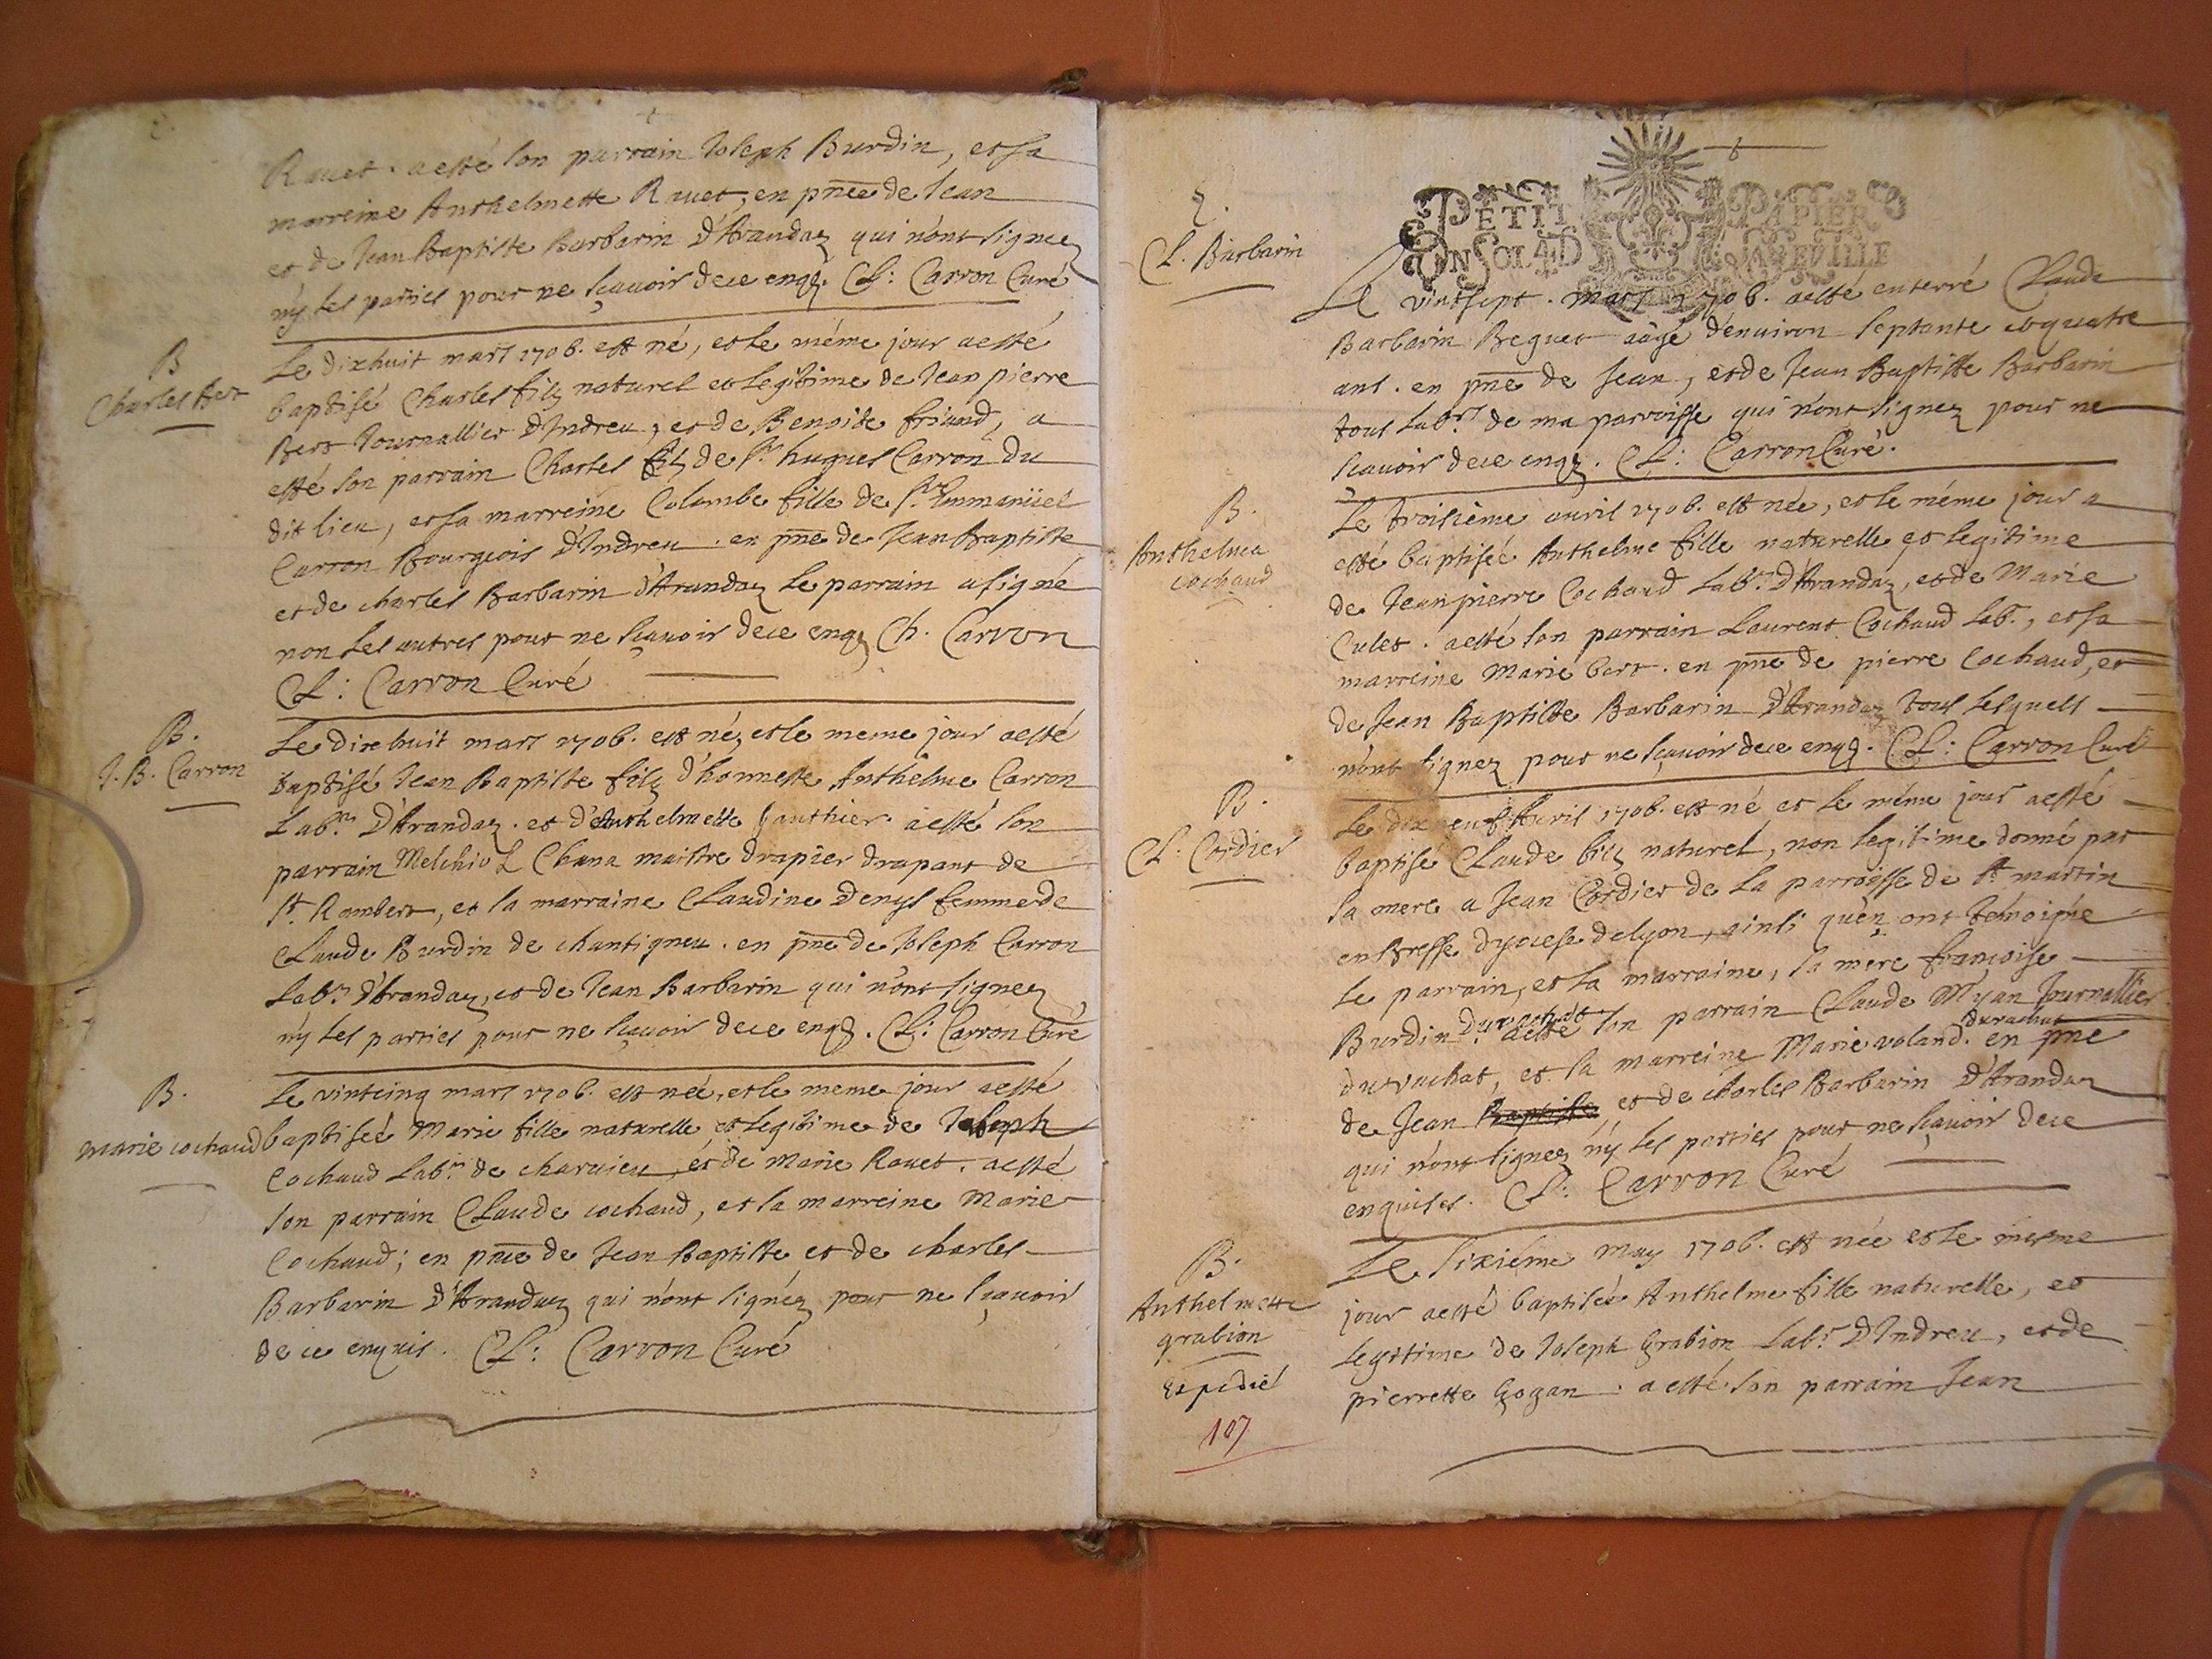 Ravet. a esté son parrain Joseph Burdin, et sa
marreine Anthelmette Ravet, en pñce de Jean
et de Jean Baptiste Barbarin d'Arandaz qui n'ont signez
ny les parties pour ne sçavoir de ce enqz. Cl: Carron Curé
B
Charles Bert
Le dixhuit mars 1706. est né, et le méme jour a esté
baptisé Charles filz naturel et legitime de Jean pierre
Bert Journallier d'Indreu, et de Benoite friand, a
esté son parrain Charles filz de Sr hugues Carron du
dit lieu, et sa marreine Colombe fille de Sr Emmanüel
Carron Bourgeois d'Indreu. en pñce de Jean Baptiste
et de charles Barbarin d'Arandaz le parrain a signé
non les autres pour ne sçavoir de ce enqz Ch. Carron
Cl: Carron Curé
B.
J. B. Carron
Le dixhuit mars 1706. est né, et le meme jour a esté
baptisé Jean Baptiste filz d'honneste Anthelme Carron
Labr. d'Arandaz. et d'Anthelmette Gauthier. a esté son
parrain Melchiol Chana maistre drapier drapant de
St. Rambert, et la marraine Claudine Denys femme de
Claude Burdin de chantigneu. en pñce de Joseph Carron
Labr. d'Arandaz, et de Jean Barbarin qui n'ont signez
ny les parties pour ne sçavoir de ce enqz. Cl: Carron Curé
B.
marie cochaud
Le vintcinq mars 1706. est née, et le meme jour a esté
baptiseé Marie fille naturelle et legitime de Joseph
Cochaud Labr. de charvieu, et de Marie Ravet. a esté
son parrain Claude cochaud, et la marreine Marie
Cochaud; en pñce de Jean Baptiste et de charles
Barbarin d'Arandaz qui n'ont signéz pour ne sçavoir
de ce enquis. Cl: Carron Curé
PETIT PAPIER
UN SOL 4 D LA FEVILLE
S.
Cl. Barbarin
Le vintsept. mars 1706. a esté enterré Claude
Barbarin Beguet aâgé d'environ septante et quatre
ans. en pñce de Jean, et de Jean Baptiste Barbarin
tous Labrs. de ma parroisse qui n'ont signez pour ne
sçavoir de ce enqz. Cl: Carron Curé.
B.
Anthelmea
cochaud
Le troisième avril 1706. est née, et le méme jour a
esté baptiseé Anthelme fille naturelle et legitime
de Jean pierre Cochaud Labr. d'Arandaz, et de Marie
Culet. a esté son parrain Laurent Cochaud Labr., et sa
marreine Marie bert. en pñce de pierre Cochaud, et
de Jean Baptiste Barbarin d'Arandaz tous lesquels
n'ont signez pour ne sçavoir de ce enqz. Cl: Carron Curé
B.
Cl. Cordier
Le dixneuf Avril 1706. est né et le méme jour a esté
baptisé Claude filz naturel, non legitime donné par
la mere a Jean Cordier de la parroisse de St. martin
en Bresse dyocese de lyon, ainsi qu'en ont témoigné
le parrain, et la marraine, la mere françoise
Burdin Duvachat. a esté son parrain Claude Myan Journallier
du vachat, et la marreine Marie voland duvachat. en pñce
de Jean Baptiste et de charles Barbarin d'Arandaz
qui n'ont signez ny les parties pour ne sçavoir de ce
enquises. Cl: Carron Curé
B.
Anthelmette
grabion
Expedié
107
Le sixiéme may 1706. est née et le mesme
jour a esté baptiseé Anthelme fille naturelle, et
legitime de Joseph Grabion Labr. d'Indreu, et de
pierrette Gogan. a esté son parrain Jean